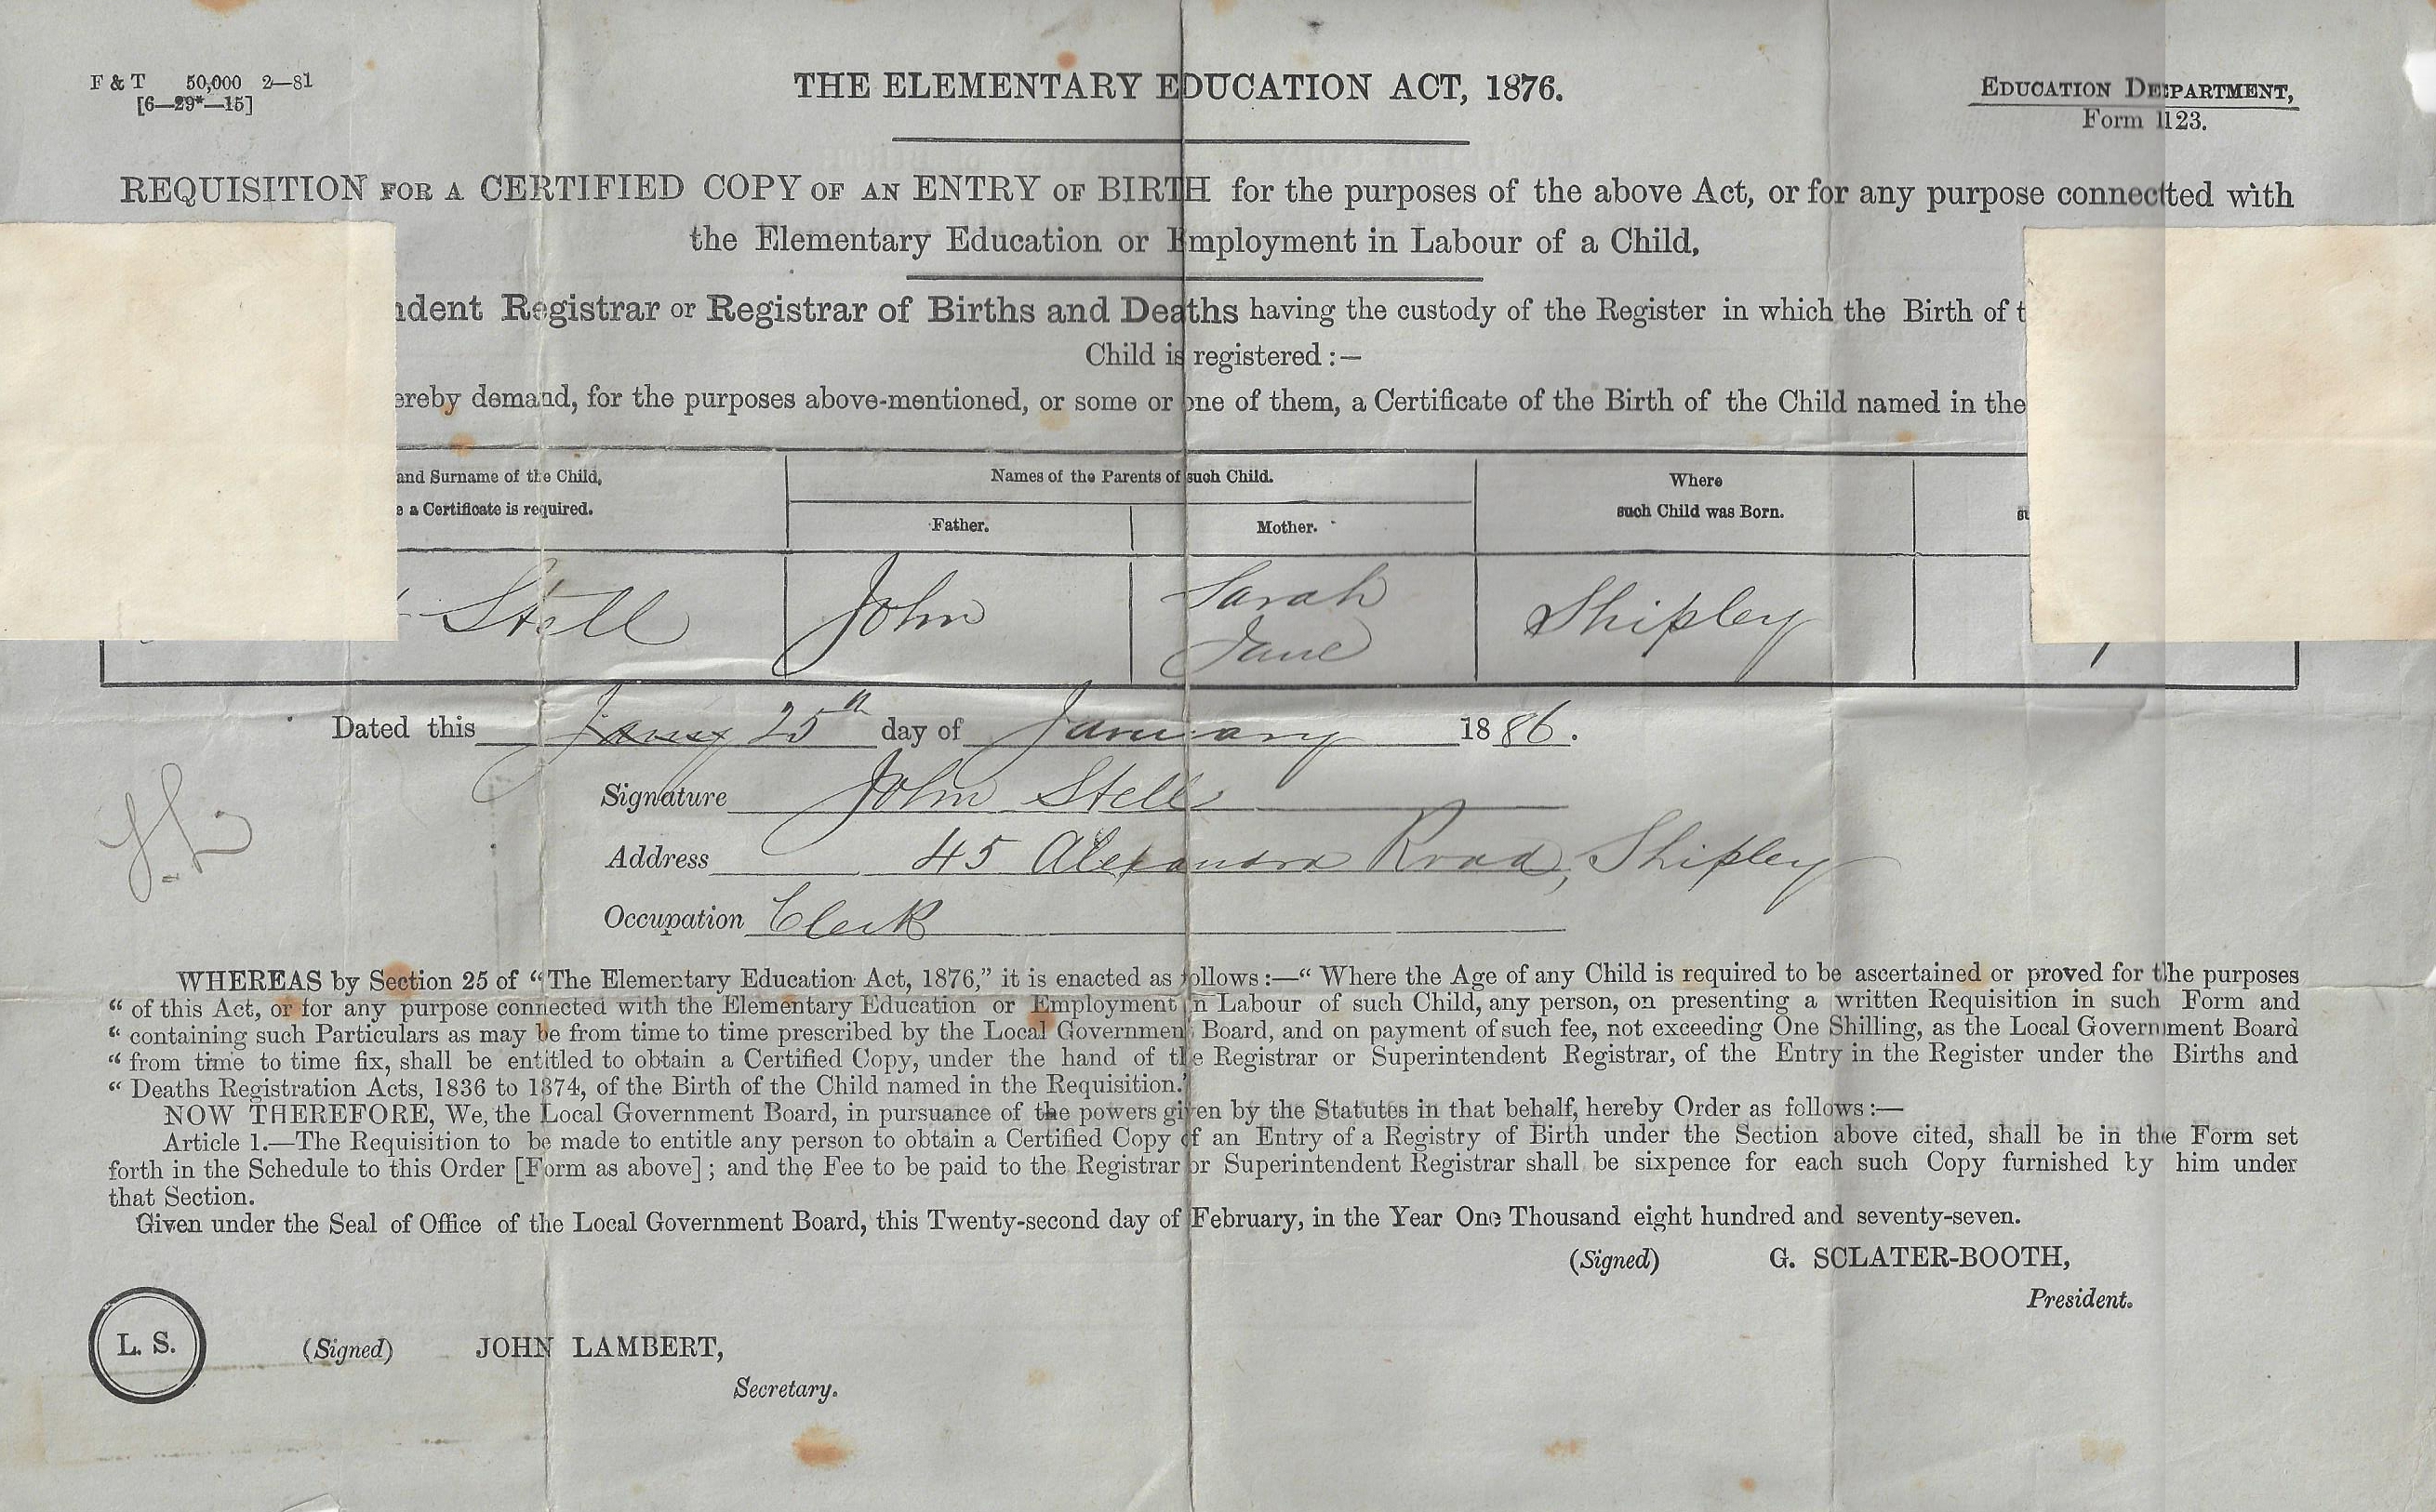 F & T 50,000 2—81
[6—29*—15]
THE ELEMENTARY EDUCATION ACT, 1876.
EDUCATION DEPARTMENT,
Form 1123.
REQUISITION FOR A CERTIFIED COPY OF AN ENTRY OF BIRTH for the purposes of the above Act, or for any purpose connected with
the Elementary Education or Employment in Labour of a Child,
ndent Registrar or Registrar of Births and Deaths having the custody of the Register in which the Birth of t
Child is registered :—
ereby demand, for the purposes above-mentioned, or some or one of them, a Certificate of the Birth of the Child named in the
and Surname of the Child,
e a Certificate is required.
Names of the Parents of such Child.
Father.
Mother.
Where
such Child was Born.
su
Stell
John
Sarah
Jane
Shipley
Dated this 25th day of January 1886.
Signature John Stell
Address 45 Alexandra Road, Shipley
Occupation Clerk
WHEREAS by Section 25 of “The Elementary Education Act, 1876,” it is enacted as follows :—“ Where the Age of any Child is required to be ascertained or proved for the purposes
“ of this Act, or for any purpose connected with the Elementary Education or Employment in Labour of such Child, any person, on presenting a written Requisition in such Form and
“ containing such Particulars as may be from time to time prescribed by the Local Government Board, and on payment of such fee, not exceeding One Shilling, as the Local Government Board
“ from time to time fix, shall be entitled to obtain a Certified Copy, under the hand of the Registrar or Superintendent Registrar, of the Entry in the Register under the Births and
“ Deaths Registration Acts, 1836 to 1874, of the Birth of the Child named in the Requisition.”
NOW THEREFORE, We, the Local Government Board, in pursuance of the powers given by the Statutes in that behalf, hereby Order as follows :—
Article 1.—The Requisition to be made to entitle any person to obtain a Certified Copy of an Entry of a Registry of Birth under the Section above cited, shall be in the Form set
forth in the Schedule to this Order [Form as above] ; and the Fee to be paid to the Registrar or Superintendent Registrar shall be sixpence for each such Copy furnished by him under
that Section.
Given under the Seal of Office of the Local Government Board, this Twenty-second day of February, in the Year One Thousand eight hundred and seventy-seven.
(Signed) G. SCLATER-BOOTH,
President.
L. S.
(Signed) JOHN LAMBERT,
Secretary.